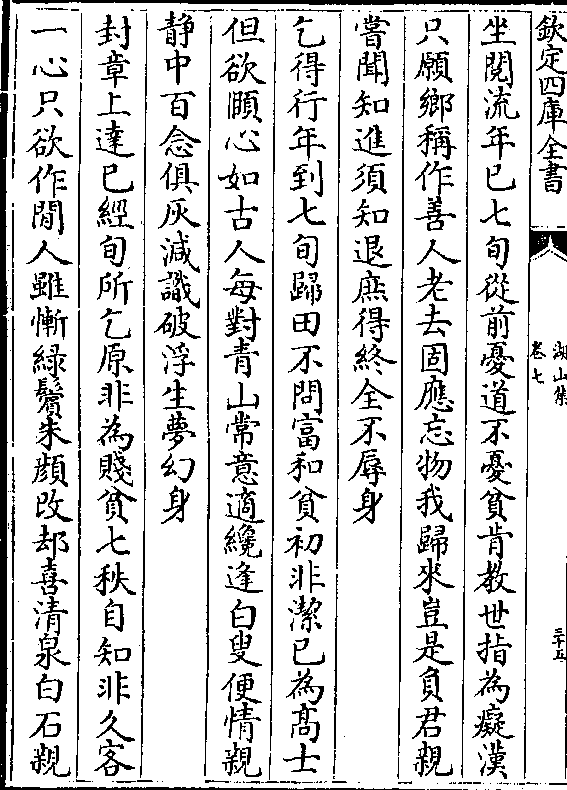 欽定四庫全書
湖山集
卷七
三十五
坐閱流年已七旬從前憂道不憂貧肯教世指為癡漢
只願鄉稱作善人老去固應忘物我歸來豈是負君親
嘗聞知進須知退庶得終全不辱身
乞得行年到七旬歸田不問富和貧初非潔已為髙士
但欲頤心如古人每對青山常意適纔逢白叟便情親
静中百念俱灰滅識破浮生夢幻身
封章上達已經旬所乞原非為賤貧七秩自知非久客
一心只欲作閒人雖慚綠鬢朱顔改却喜清泉白石親